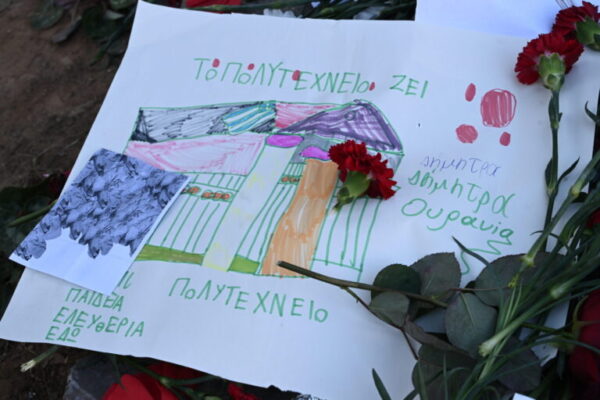 ΤΟ ΠΟΛΥΤΕΧΝΕΙΟ ΖΕΙ
ΔΗΜΗΤΡΑ
ΔΗΜΗΤΡΑ
Ουρανία
ΠΟΛΥΤΕΧΝΕΙΟ
ΠΑΙΔΕΙΑ
ΕΛΕΥΘΕΡΙΑ
ΕΔΩ